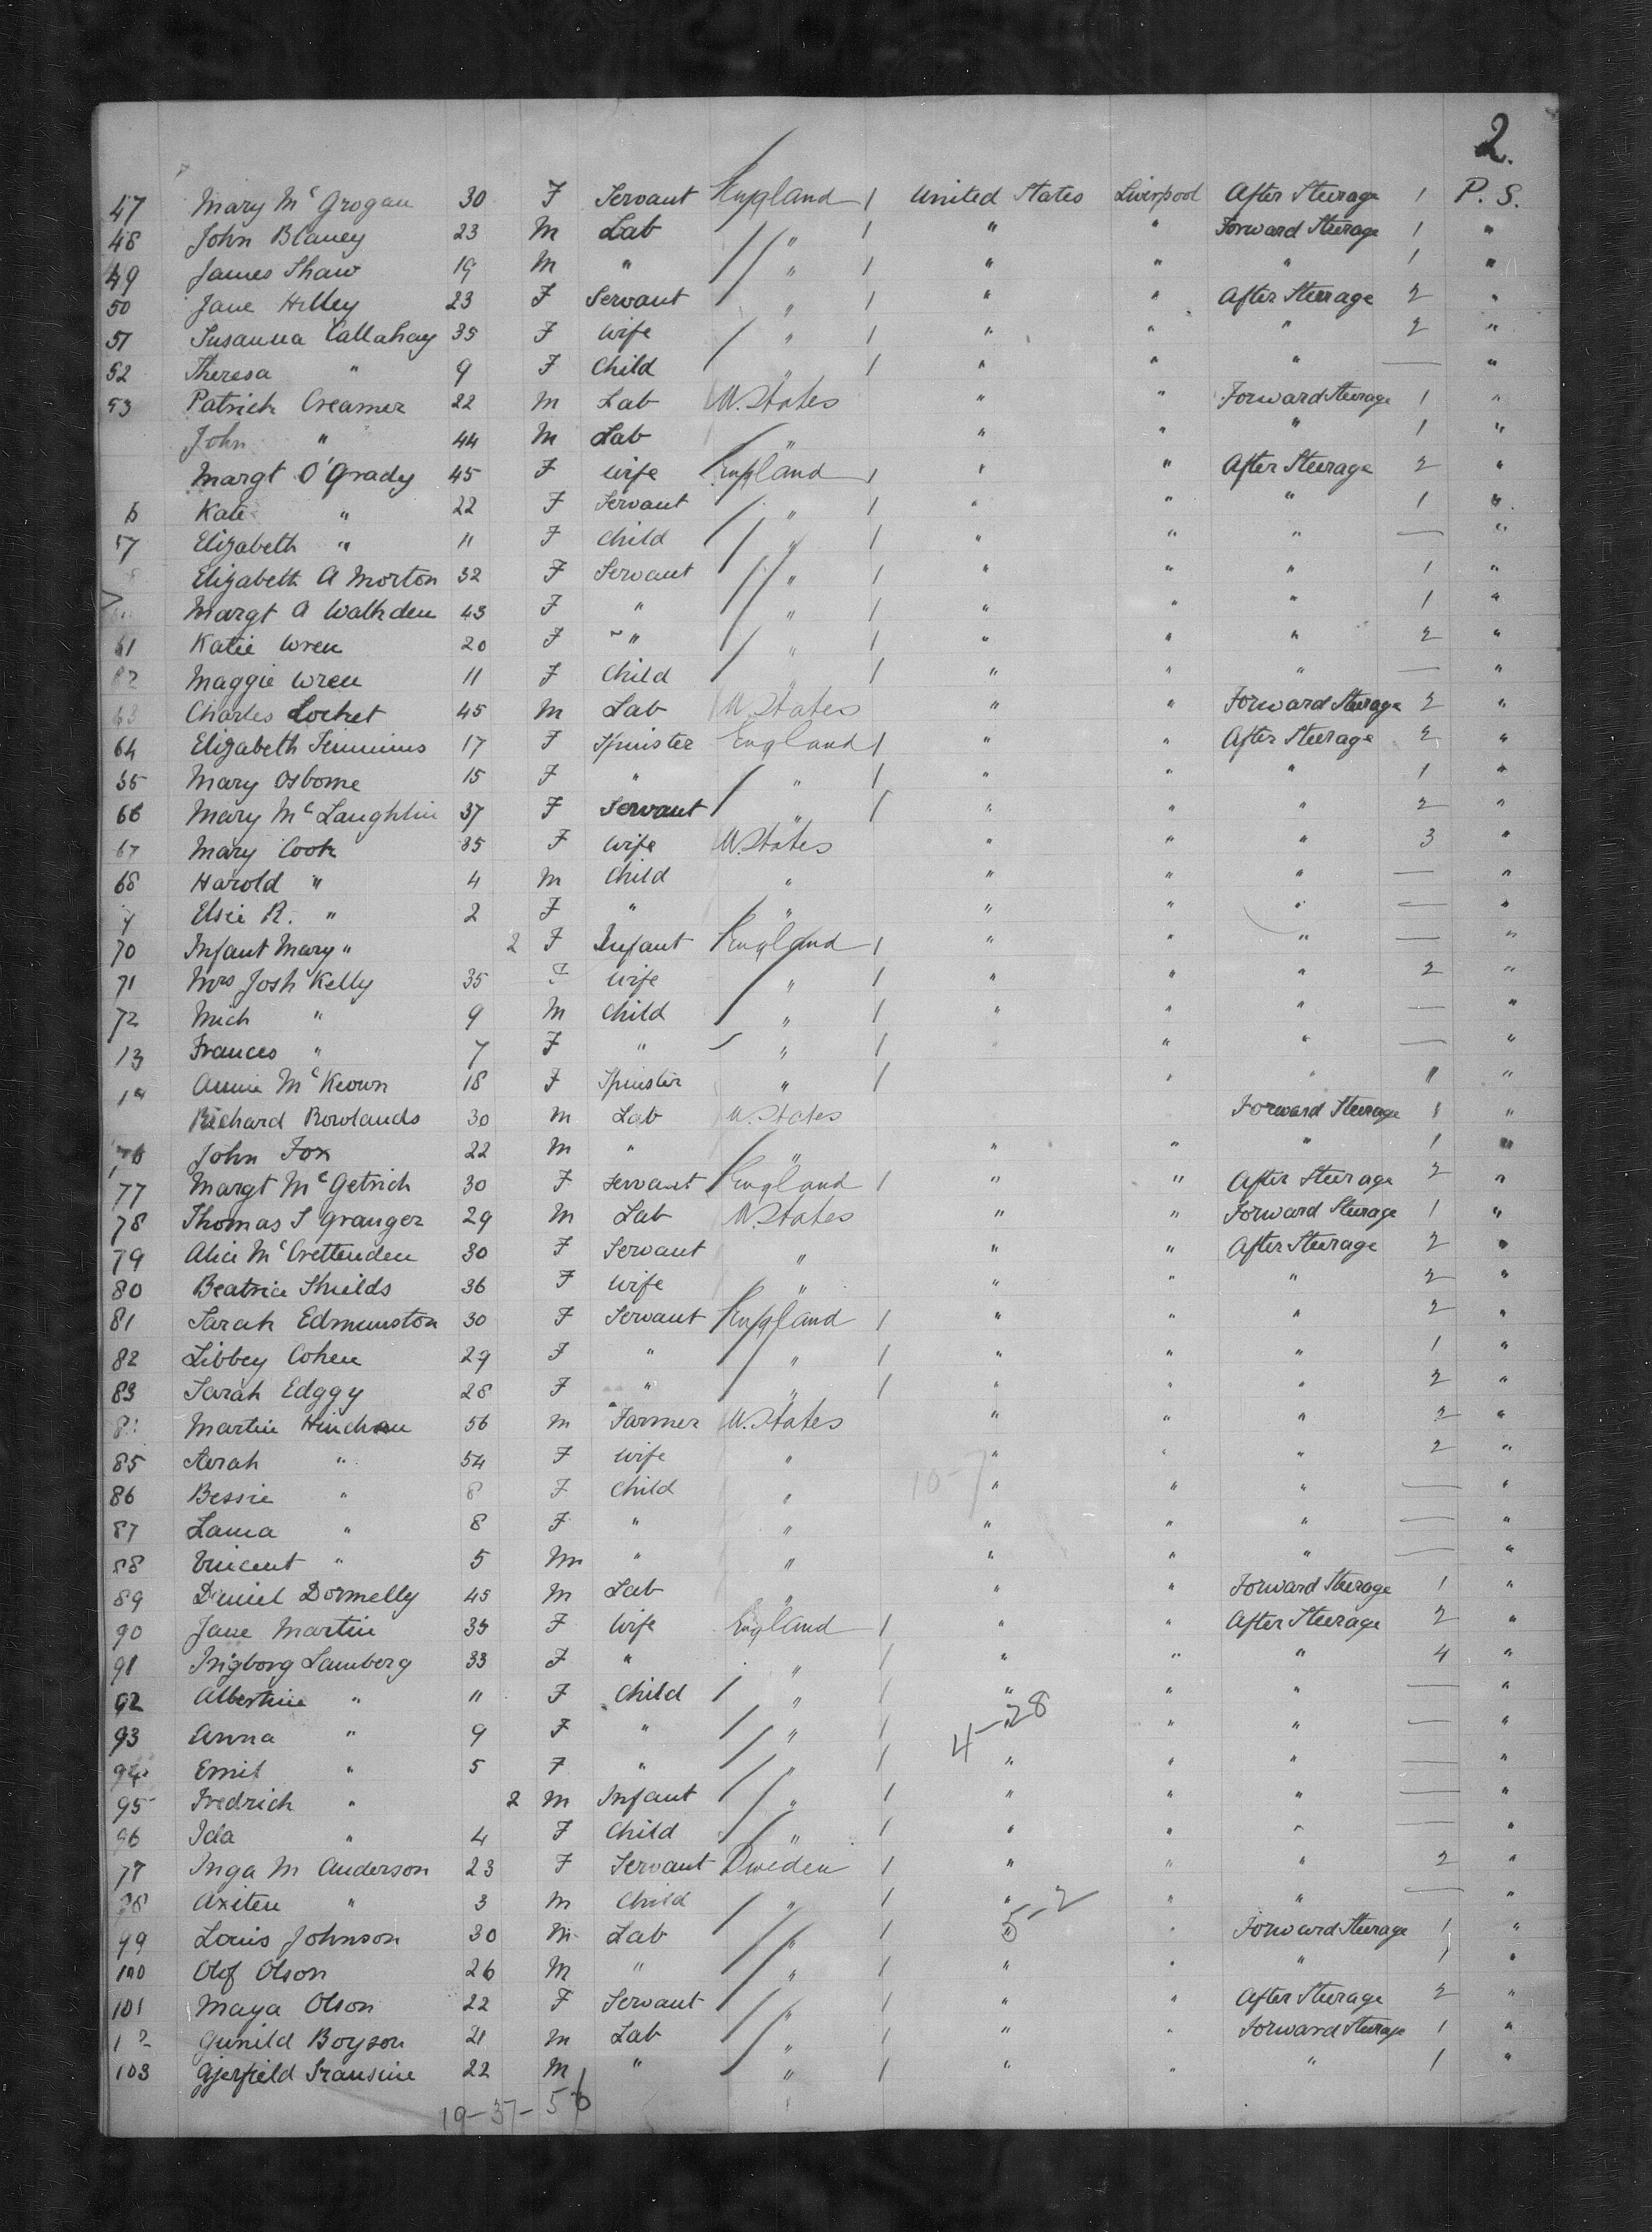 2.
47 Mary McGrogan 30 F Servant England 1 United States Liverpool After Steerage 1 P. S.
48 John Blaney 23 M Lab " 1 " " Forward Steerage 1 "
49 James Shaw 19 M " " 1 " " " 1 "
50 Jane Hilley 23 F Servant " 1 " " After Steerage 2 "
51 Susanna Callahay 35 F Wife " 1 " " " 2 "
52 Theresa " 9 F Child " 1 " " " — "
53 Patrick Creamer 22 M Lab U. States " " Forward Steerage 1 "
John " 44 M Lab " " " " 1 "
Margt O'Grady 45 F Wife England 1 " " After Steerage 2 "
6 Kate " 22 F Servant " 1 " " " 1 "
57 Elizabeth " 11 F Child " 1 " " " — "
8 Elizabeth A Morton 32 F Servant " 1 " " " 1 "
Margt A Walkden 43 F " " 1 " " " 1 "
61 Katie Wren 20 F " " 1 " " " 2 "
62 Maggie Wren 11 F Child " 1 " " " — "
63 Charles Locket 45 M Lab U. States " " Forward Steerage 2 "
64 Elizabeth Timmins 17 F Spinster England 1 " " After Steerage 2 "
65 Mary Osborne 15 F " " 1 " " " 1 "
66 Mary McLaughlin 37 F Servant " 1 " " " 2 "
67 Mary Cook 35 F Wife U. States " " " 3 "
68 Harold " 4 M Child " " " " — "
9 Elsie R. " 2 F " " " " " — "
70 Infant Mary " 2 F Infant England 1 " " " — "
71 Mrs Josh Kelly 35 F Wife " 1 " " " 2 "
72 Mich " 9 M Child " 1 " " " — "
73 Frances " 7 F " " 1 " " " — "
74 Annie McKeown 18 F Spinster " 1 " " 1 "
Richard Rowlands 30 M Lab U. States Forward Steerage 1 "
76 John Fox 22 M " " " " " 1 "
77 Margt McGetrich 30 F Servant England 1 " " After Steerage 2 "
78 Thomas S Granger 29 M Lab U. States " " Forward Steerage 1 "
79 Alice McCrettenden 30 F Servant " " " After Steerage 2 "
80 Beatrice Shields 36 F Wife " " " " 2 "
81 Sarah Edmunston 30 F Servant England 1 " " " 2 "
82 Libbey Cohen 29 F " " 1 " " " 1 "
83 Sarah Edggy 28 F " " 1 " " " 2 "
8 Martin Hinchan 56 M Farmer U. States " " " 2 "
85 Sarah " 54 F Wife " " " " 2 "
86 Bessie " 8 F Child " 10-7 " " " — "
87 Laura " 8 F " " " " " — "
88 Vincent " 5 M " " " " " — "
89 Daniel Donnelly 45 M Lab " " " Forward Steerage 1 "
90 Jane Martin 35 F Wife England 1 " " After Steerage 2 "
91 Ingborg Lamberg 33 F " " 1 " " " 4 "
92 Albertine " 11 F Child " 1 " " " — "
93 Anna " 9 F " " 1 4-28 " " " — "
94 Emil " 5 F " " 1 " " " — "
95 Fredrich " 2 M Infant " 1 " " " — "
96 Ida " 4 F Child " 1 " " " — "
97 Inga M Anderson 23 F Servant Sweden 1 " " " 2 "
98 Axiten " 3 M Child " 1 " " " — "
99 Louis Johnson 30 M Lab " 1 5-2 " Forward Steerage 1 "
100 Olof Olson 26 M " " 1 " " " 1 "
101 Maya Olson 22 F Servant " 1 " " After Steerage 2 "
1 2 Gunild Boyson 21 M Lab " 1 " " Forward Steerage 1 "
103 Gjerfield Fransine 22 M " " 1 " " " 1 "
19-37-56